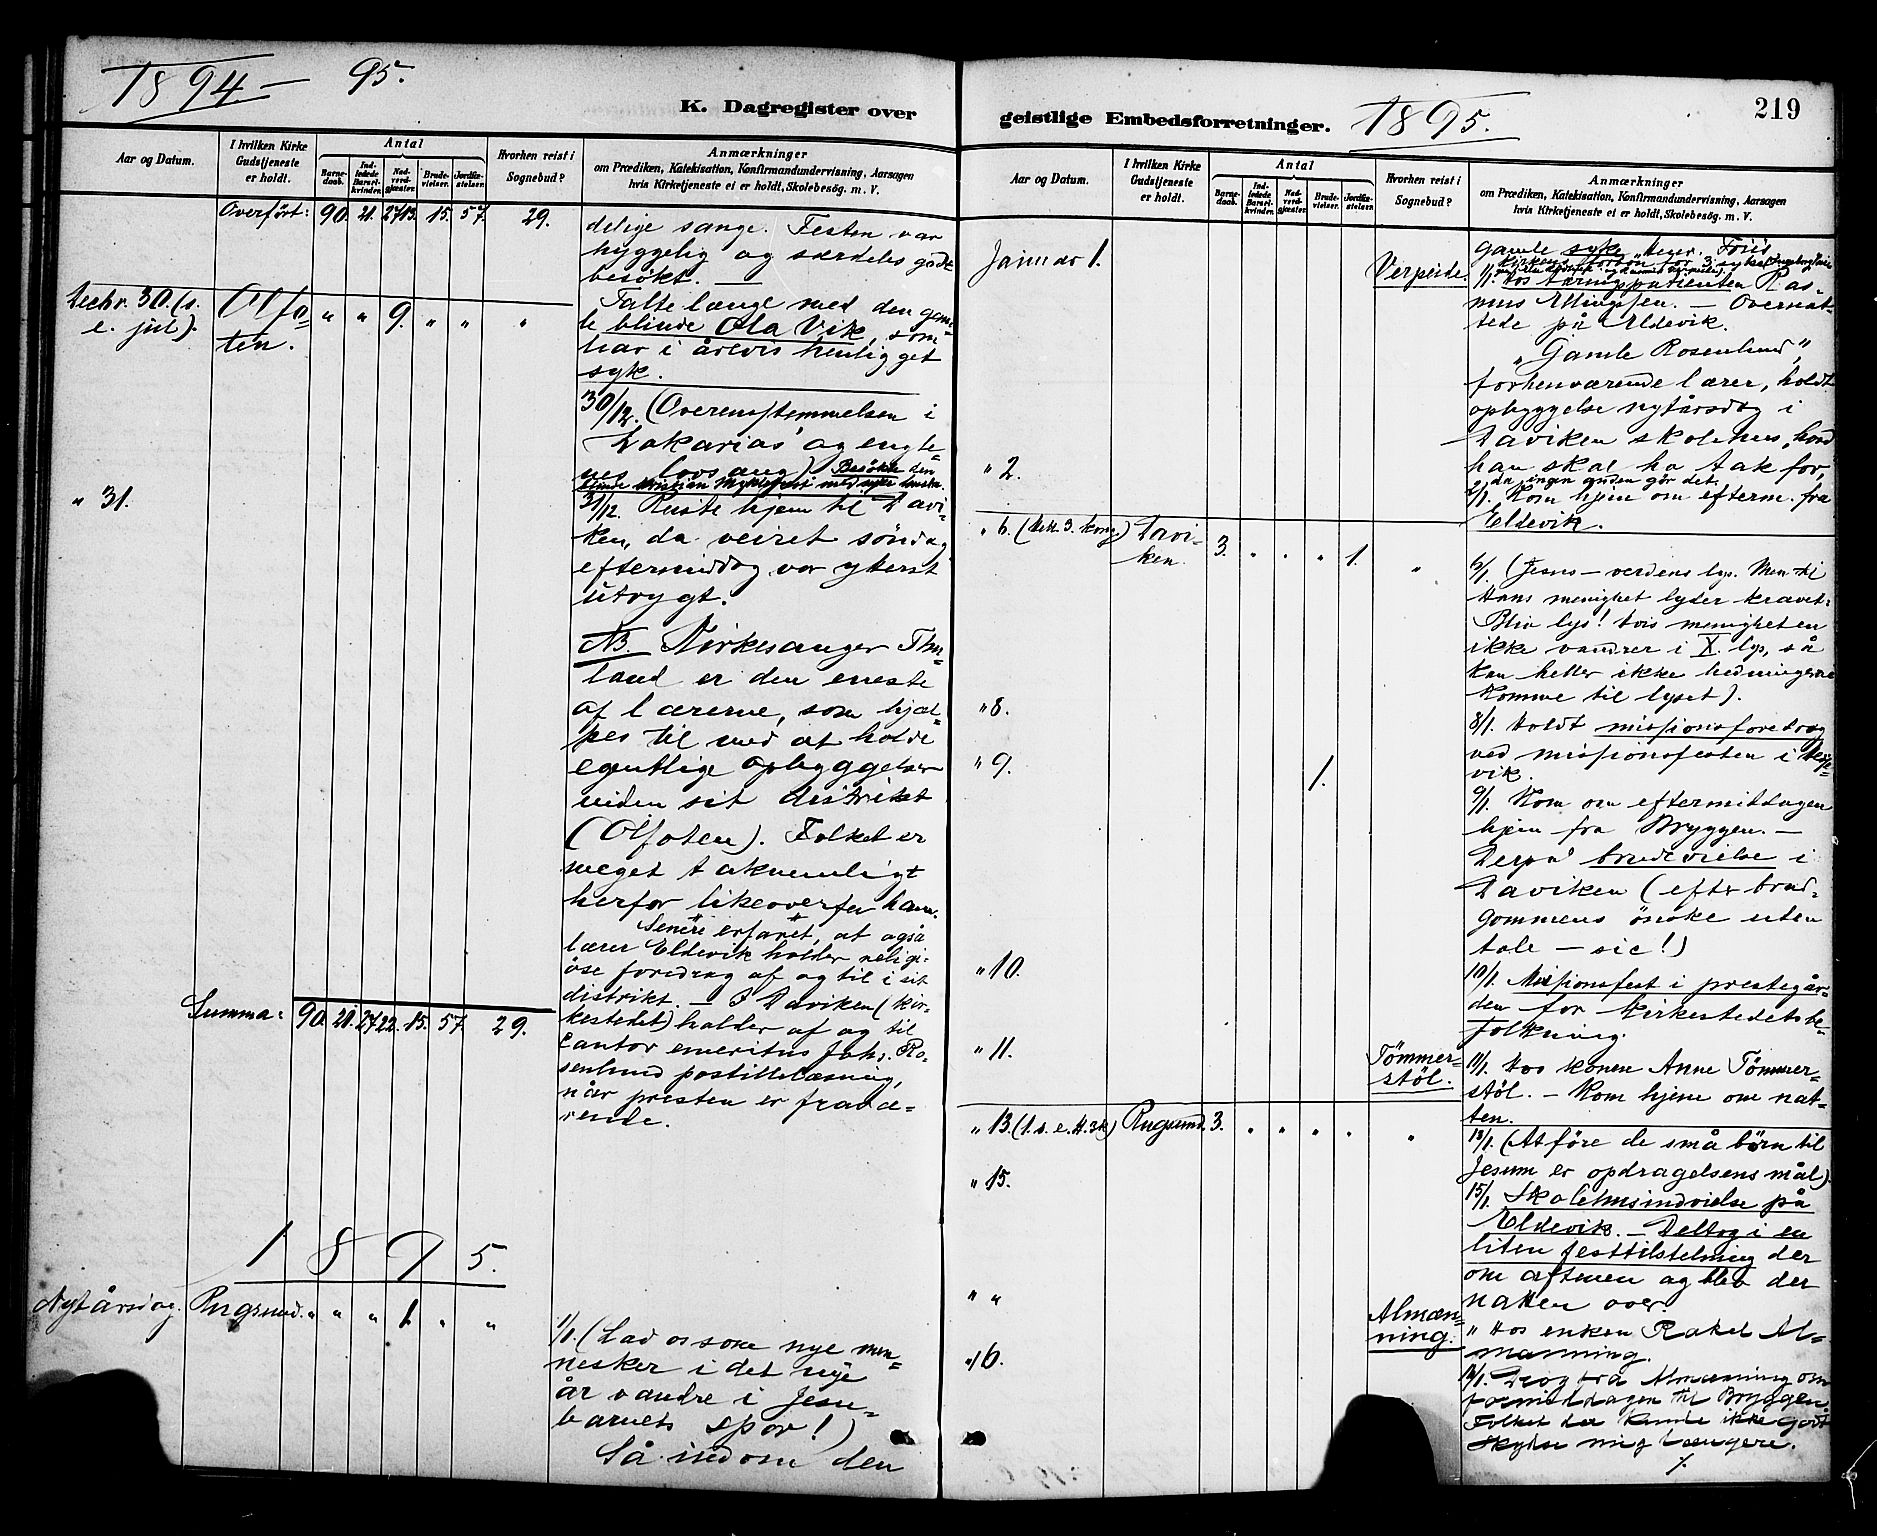 1894 - 95.
K. Dagregister over
Aar og Datum.
I hvilken Kirke
Gudstjeneste
er holdt.
Antal
Barne-
daab.
Ind-
ledede
Barsel-
kvinder.
Nad-
verd-
gjæster.
Brude-
vielser.
Jordfæ-
stelser.
Hvorhen reist i
Sognebud?
Anmærkninger
om Prædiken, Katekisation, Konfirmandundervisning, Aarsagen
hvis Kirketjeneste ei er holdt, Skolebesög. m. V.
Overført: 90. 21. 2713. 15. 57. 29.
delige sange. Festen var
hyggelig og særdeles godt
besökt. —
Decbr. 30. (s.
e. jul).
Olfo-
ten.
" " 9. " " "
Talte længe med den gam-
le blinde Ola Vik, som
har i årevis henligget
syk.
30/12. (Overensstemmelsen i
Zakarias' og engle-
nes lovsang). Besökte den
blinde Kristian Myklebust med syke
" 31.
31/12. Reiste hjem til Davi-
ken, da veiret söndag
eftermiddag var yterst
utrygt.
NB. Kirkesanger
land er den eneste
af lærerne, som hjæl-
pes til med at holde
egentlige opbyggelser
inden sit distrikt
(Olfoten). Folket er
meget taknemligt
herfor likeoverfor ham.
Senere erfaret, at også
lærer Eldevik holder religi-
öse foredrag af og til i sit
distrikt. — I Daviken (kir-
kestedet) holder af og til
cantor emeritus Johs. Ro-
senlund postillelæsning,
når presten er fravæ-
rende.
Summa: 90. 21. 2722. 15. 57. 29.
1895.
Nytårsdag. Rugsund. " " " 1. " "
1/1. (Lad os som nye men-
nesker i det nye
år vandre i Jesu-
barnets spor!)
Så indom den
geistlige Embedsforretninger.
1895.
219
Aar og Datum.
I hvilken Kirke
Gudstjeneste
er holdt.
Antal
Barne-
daab.
Ind-
ledede
Barsel-
kvinder.
Nad-
verd-
gjæster.
Brude-
vielser.
Jordfæ-
stelser.
Hvorhen reist i
Sognebud?
Anmærkninger
om Prædiken, Katekisation, Konfirmandundervisning, Aarsagen
hvis Kirketjeneste ei er holdt, Skolebesög. m. V.
Januar 1.
Verpeide.
gamle syke
Kirkens forbön for 3 syke
1/1. Hos tæringspatienten Ras-
mus Ellingsen. — Overnat-
tede på Eldevik.
"Gamle Rosenlund",
forhenværende lærer, holdt
opbyggelse nytårsdag i
Daviken skolehus, hvad
han skal ha tak for,
da ingen anden gör det.
" 2.
2/1. Kom hjem om efterm. fra
Eldevik.
" 6. (Hell. 3. kong.) Davi-
ken. 3. " " " 1. "
6/1. (Jesus — verdens lys. Men til
Hans menighet lyder kravet:
Bliv lys! Hvis menigheten
ikke vandrer i X. lys, så
kan heller ikke hedningerne
komme til lyset).
" 8.
8/1. Holdt missionsforedrag
ved missionsfesten i
vik.
" 9. 1.
9/1. Kom om eftermiddagen
hjem fra Bryggen. —
Derpå brudevielse i
Daviken (efter brud-
gommens önske uten
tale — sic!)
" 10.
10/1. Missionsfest i prestegår-
den for kirkestedets be-
folkning.
" 11.
Tömmer-
stöl.
11/1. Hos konen Anne Tömmer-
stöl. — Kom hjem om nat-
ten.
" 13. (1. s. e. H. 3 k.) Rugsund. 3. " " " " "
13/1. (At före de små börn til
Jesum er opdragelsens mål).
" 15.
15/1. Skolehusindvielse på
Eldevik. — Deltog i en
liten festtilstelning der
om aftenen og blev der
natten over.
" "
Almæn-
ning.
" Hos enken Rakel Al-
mænning.
" 16.
16/1. Drog fra Almænning om
formiddagen til Bryggen.
Folket der kunde ikke godt
skydse mig længere.